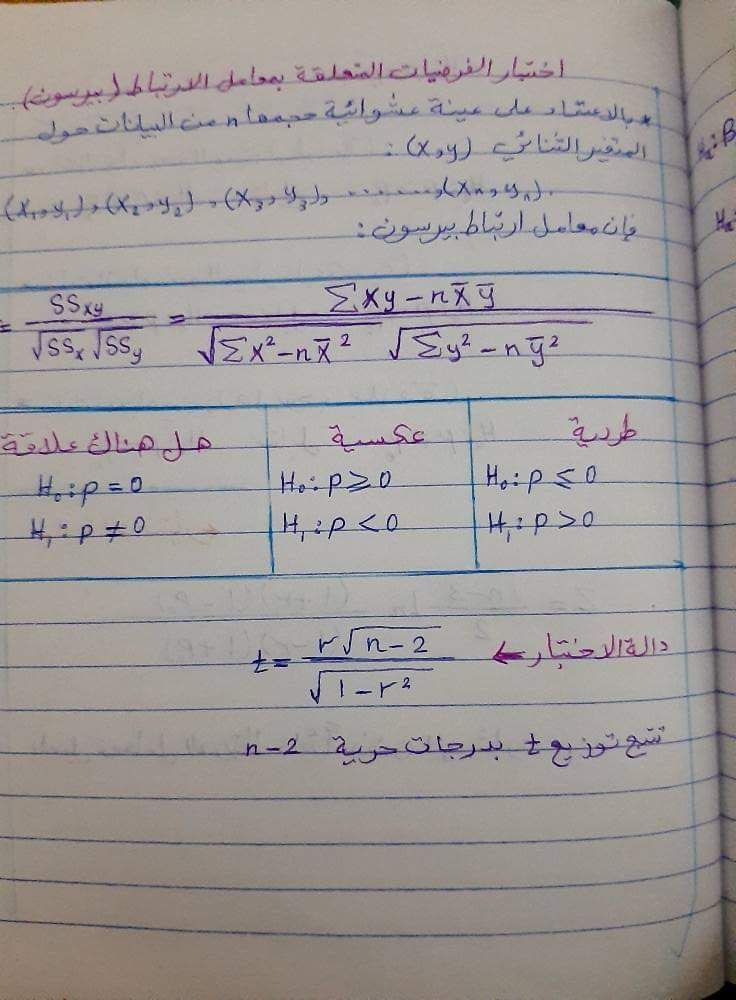 اختبار الفرضيات المتعلقة بمعامل الارتباط (بيرسون)
* بالاعتماد على عينة عشوائية حجمها n من البيانات حول
المتغير الثنائي (x,y) :
(x₁,y₁), (x₂,y₂), (x₃,y₃), ........, (xₙ,yₙ).
فإن معامل ارتباط بيرسون :
= SSxy / √SSx √SSy = Σxy − n x̄ ȳ / √Σx² − n x̄² √Σy² − n ȳ²
طردية عكسية هل هناك علاقة
H₀: ρ ≤ 0 H₀: ρ ≥ 0 H₀: ρ = 0
H₁: ρ > 0 H₁: ρ < 0 H₁: ρ ≠ 0
دالة الاختبار ← t = r√n − 2 / √1 − r²
تتبع توزيع t بدرجات حرية n − 2